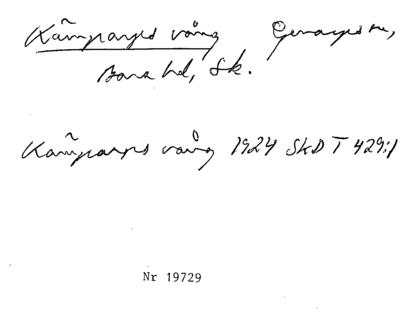 Kämparps vång Genarps sn,
Bara hd, Sk.
Kämparps vång 1924 SkD T 429:1
Nr 19729